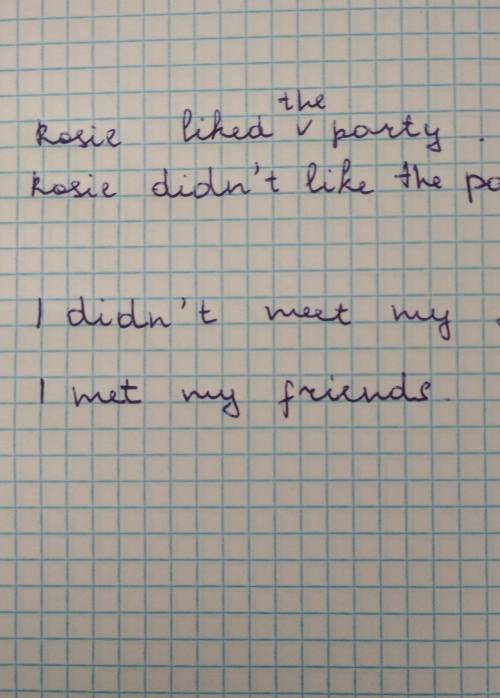 Rosie liked the party.
Rosie didn't like the pa
I didn't meet my
I met my friends.